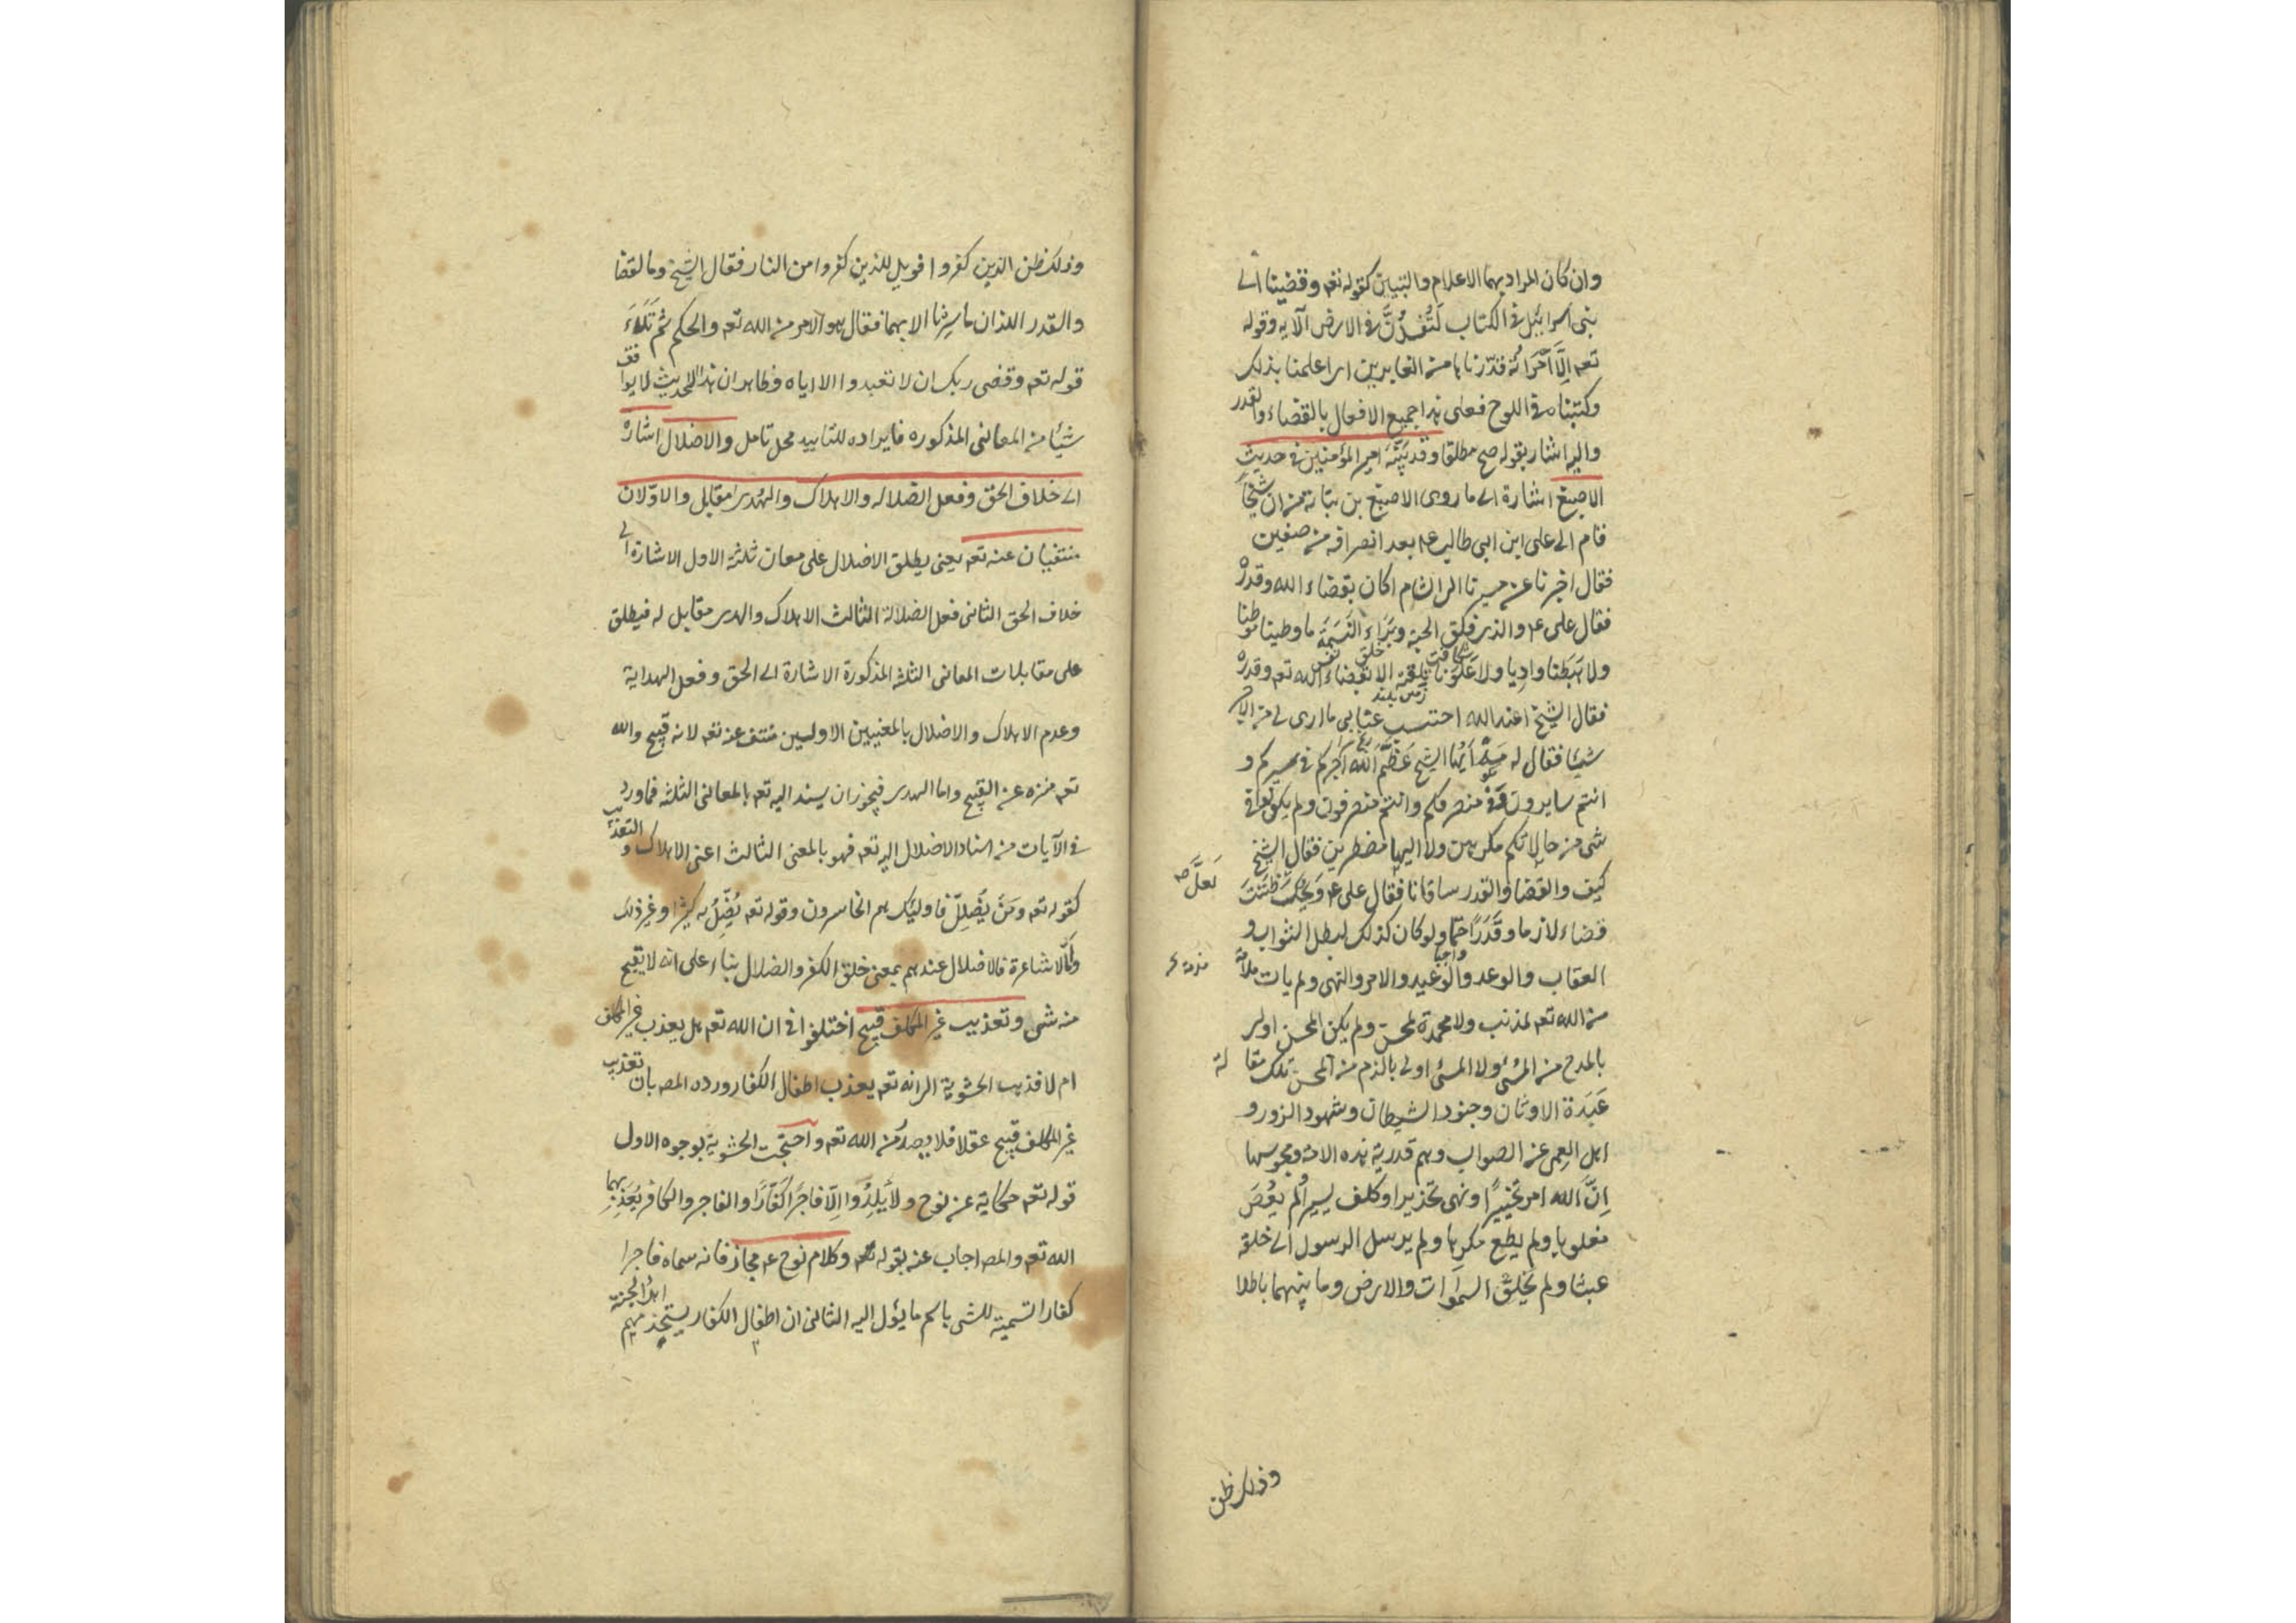 وان كان المراد بهما الاعلام والتبيين كقوله تعه وقضينا الى
بنى اسرائيل فى الكتاب لَتُفْسِدُنَّ فى الارض الآيه وقوله
تعه اِلَّا امْرَاتُهُ قدّرناها من الغابرين اى اعلمنا بذلك
وكتبناه فى اللوح فعلى هذا جميع الافعال بالقضاء والقدر
واليه اشار بقوله صح مطلقا وقد بيّنه امير المؤمنين فى حديث
الاصبغ اشارة الى ما روى الاصبغ بن نباتة من ان شيخا
قام الى على ابن ابى طالب عم بعد انصرافه من صفين
فقال اخبرنا عن مسيرنا الى الشام اكان بقضاء الله وقدره
فقال على عم والذى فلق الحبة وبَرَاءَ النَّسَمَة ما وطينا موطنا
شكافت خلق نفس
ولا هَبَطنا واديا ولا عَلَوْنا تلعة الا بقضاء الله تعه وقدره
زمين بلند
فقال الشيخ اعند الله احتسب عنائى ما ارى لى من الاجر
شيئا فقال له مَهْ ايّها الشيخ عَظَّمَ الله اجركم فى مسيركم و
انتم سايرون وفى منصرفكم وانتم منصرفون ولم يكونوا فى
شئ من حالاتكم مكرهين ولا اليها مضطرين فقال الشيخ
كيف والقضا والقدر ساقانا فقال على عم وَيْحَكَ ظَنَنْتَ
لعلَّ صه
قضاء لازما وقَدَرًا حتما ولو كان كذلك لبطل الثواب و
واجبا
العقاب والوعد والوعيد والامر والنهى ولم يات ملامة
من الله تعه لمذنب ولا محمدة لمحسن ولم يكن المحسن اولى
بالمدح من المسئ ولا المسئ اولى بالذم من المحسن تلك مقا لة
عَبَدَة الاوثان وجنود الشيطان وشهود الزور و
اهل العمى عن الصواب وهم قدرية هذه الامة ومجوسها
اِنَّ الله امر تخييرًا ونهى تحذيرا وكلف يسيرا لم يُعْصَ
مغلوبا ولم يطع مكرها ولم يرسل الرسول الى خلقه
عبثا ولم يَخْلق السموات والارض وما بينهما باطلا
وذلك ظن
وذلك ظن الذين كفروا فويل للذين كفروا من النار فقال الشيخ وما القضا
والقدر اللذان ما سرنا الا بهما فقال هو الامر من الله تعه والحكم ثم تَلاءَ
قوله تعه وقضى ربك ان لا تعبدوا الا اياه وظاهر ان هذا الحديث لا يوافق
شيئا من المعانى المذكوره فايراده للتاييد محل تامل والاضلال اشارة
الى خلاف الحق وفعل الضلاله والاهلاك والهدى مقابل والاوّلان
منتفيان عنه تعه يعنى يطلق الاضلال على معان ثلثة الاول الاشارة الى
خلاف الحق الثانى فعل الضلالة الثالث الاهلاك والهدى مقابل له فيطلق
على مقابلات المعانى الثلثه المذكورة الاشارة الى الحق وفعل الهداية
وعدم الاهلاك والاضلال بالمعنيين الاولين منتف عنه تعه لانه قبيح والله
تعه منزه عن القبيح واما الهدى فيجوز ان يسند اليه تعه بالمعانى الثلثه فما ورد
فى الآيات من اسناد الاضلال اليه تعه فهو بالمعنى الثالث اعنى الاهلاك والتعذيب
كقوله تعه ومَنْ يُضْلِلْ فاولئك هم الخاسرون وقوله تعه يُضِلُّ به كثيرا وغير ذلك
وامّا الاشاعرة فالاضلال عندهم بمعنى خلق الكفر والضلال بناء على انه لا يقبح
منه شئ وتعذيب غير المكلف قبيح اختلفوا فى ان الله تعه هل يعذب غير المكلف
ام لا فذهب الحشوية الى انه تعه يعذب اطفال الكفار ورده المصه بان تعذيب
غير المكلف قبيح عقلا فلا يصدر من الله تعه واحتجت الحشوية بوجوه الاول
قوله تعه حكاية عن نوح ولا يَلِدُوا اِلّا فاجرًا كَفّارًا والفاجر والكافر يُعَذِّبهما
الله تعه والمصه اجاب عنه بقوله وكلام نوح عم مجاز فانه سماه فاجرا
كفارا تسمية للشئ باسم ما يؤل اليه الثانى ان اطفال الكفار يستخدمهم اهل الجنة